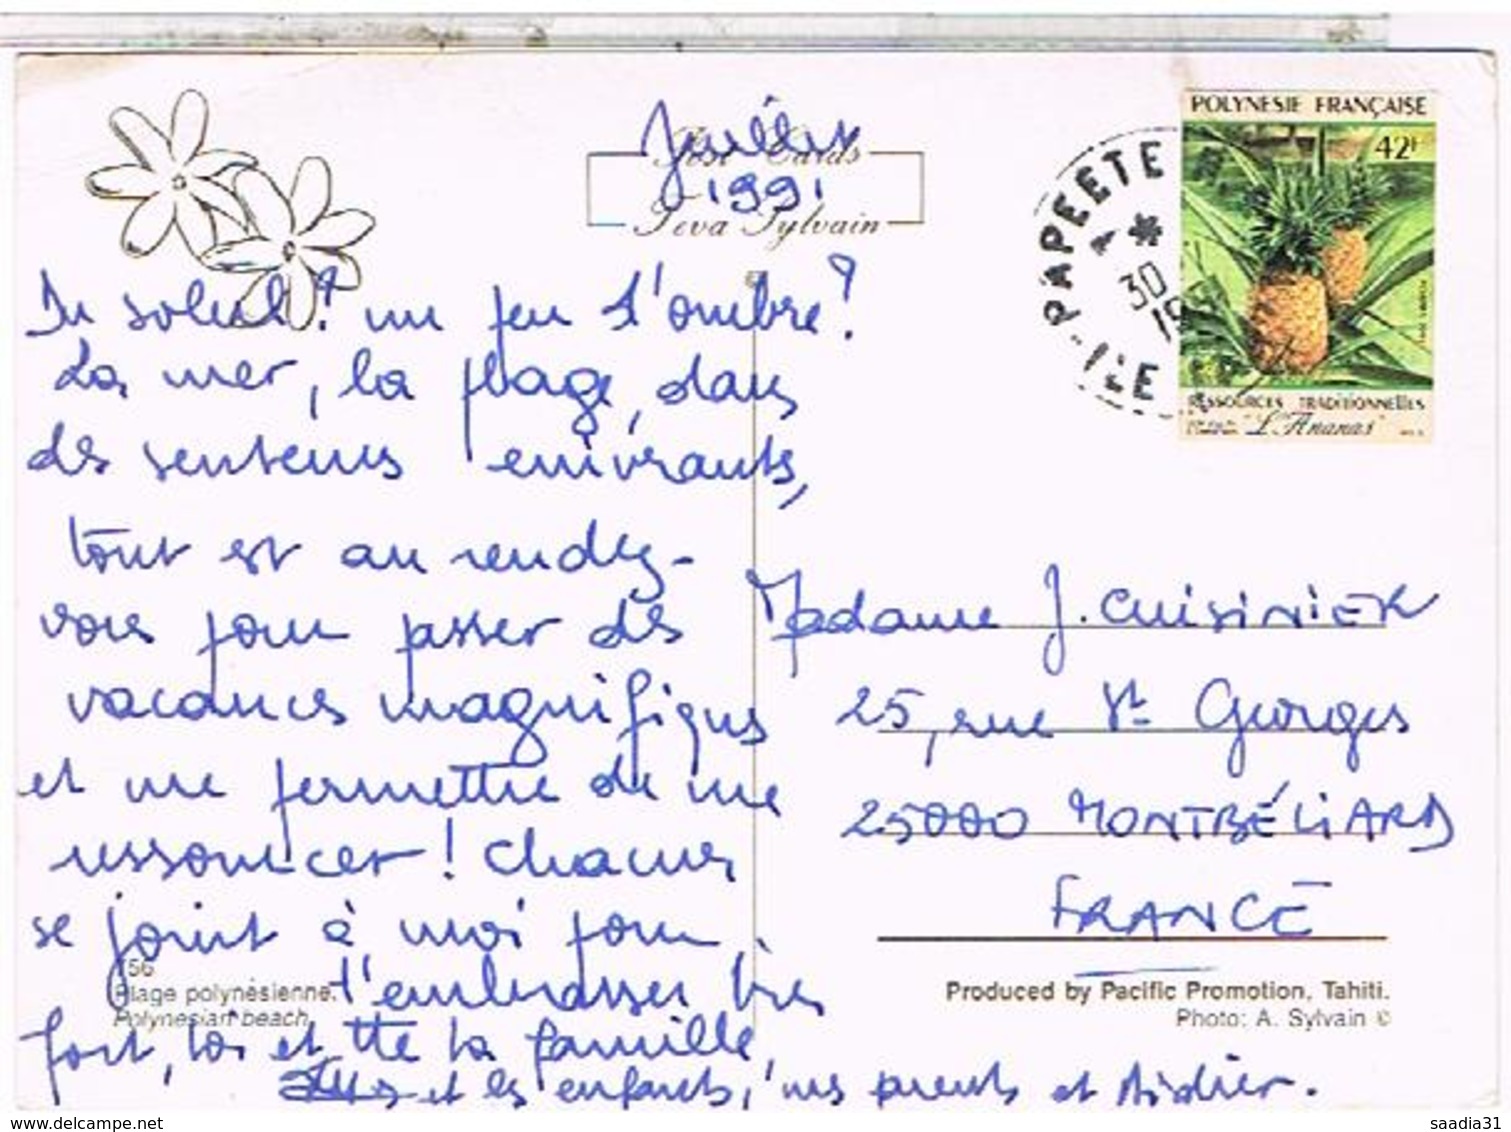 Juillet
Post Cards
1991
Teva Sylvain
POLYNESIE FRANÇAISE
42F
PAPEETE
30
19
ILE
RESSOURCES TRADITIONNELLES
"L'Ananas"
Du soleil ? un peu d'ombre ?
La mer, la plage, dans
des senteurs enivrantes,
tout est au rendez-
vous pour passer des
vacances magnifiques
et me permettre de me
ressourcer ! Chacun
se joint à moi pour
t'embrasser très
fort, toi et tte ta famille,
et les enfants, mes parents et Didier.
Madame J. CUISINIER
25, rue St Georges
25000 MONTBÉLIARD
FRANCE
156
Plage polynésienne.
Polynesian beach.
Produced by Pacific Promotion, Tahiti.
Photo: A. Sylvain ©
www.delcampe.net
saadia31